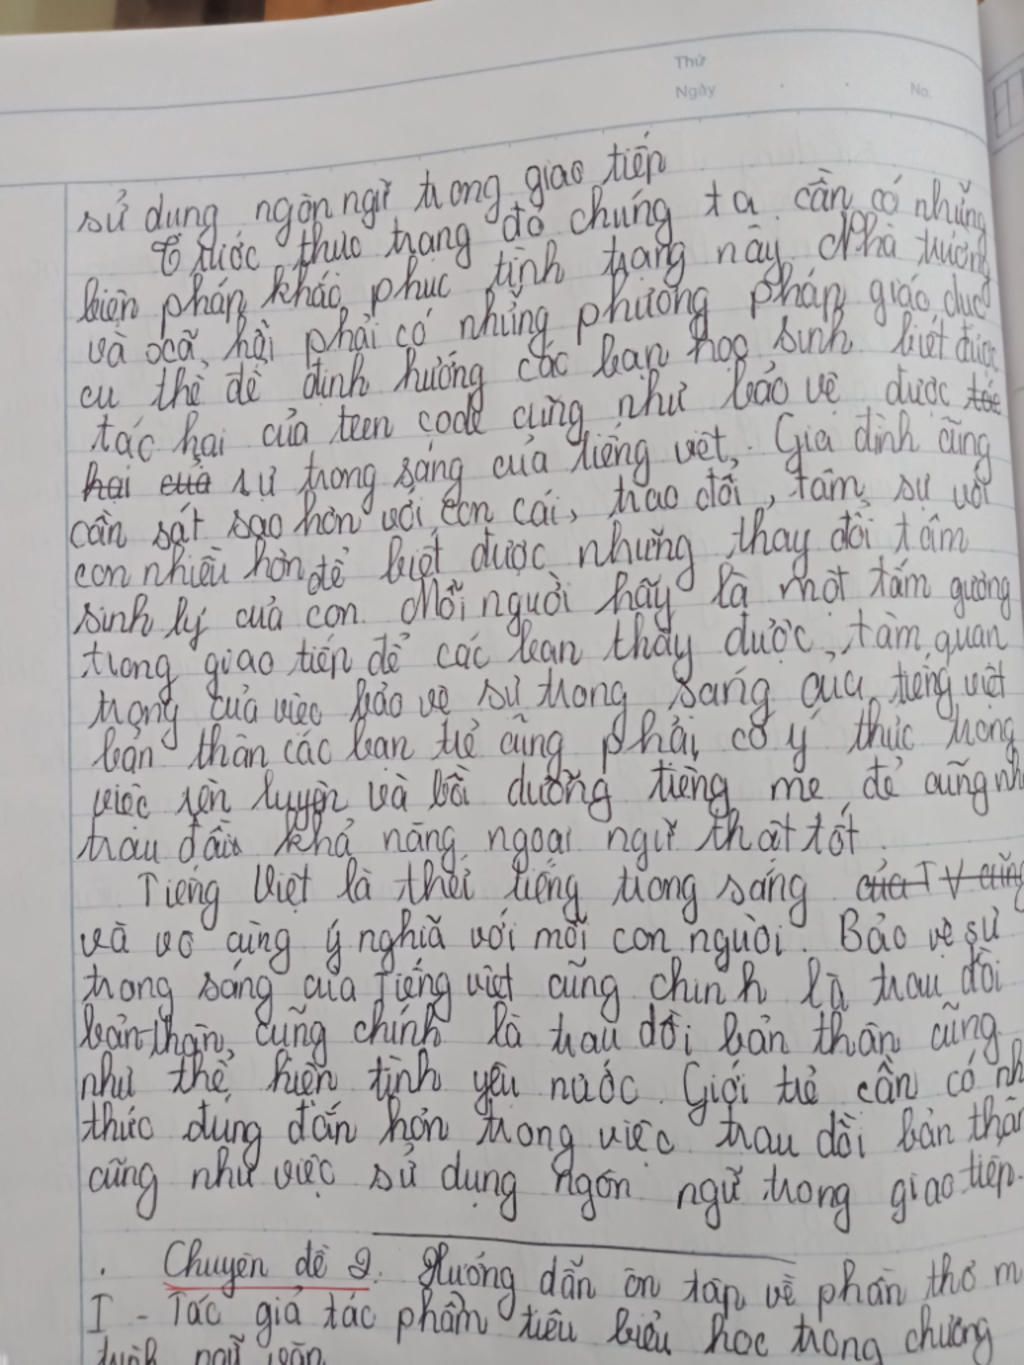 Thứ
Ngày
No.
sử dụng ngôn ngữ trong giao tiếp
Trước thực trạng đó chúng ta cần có những
biện pháp khắc phục tình trạng này. Nhà trường
và xã hội phải có những phương pháp giáo dục
cụ thể để định hướng các bạn học sinh biết được
tác hại của teen code cũng như bảo vệ được tác
hại của sự trong sáng của tiếng việt. Gia đình cũng
cần sát sao hơn với con cái, trao đổi, tâm sự với
con nhiều hơn để biết được những thay đổi tâm
sinh lý của con. Mỗi người hãy là một tấm gương
trong giao tiếp để các bạn thấy được tầm quan
trọng của việc bảo vệ sự trong sáng của tiếng việt
bản thân các bạn trẻ cũng phải có ý thức trong
việc rèn luyện và bồi dưỡng tiếng mẹ đẻ cũng
trau dồi khả năng ngoại ngữ thật tốt.
Tiếng Việt là thứ tiếng trong sáng của TV cũng
và vô cùng ý nghĩa với mỗi con người. Bảo vệ sự
trong sáng của Tiếng việt cũng chính là trau dồi
bản thân, cũng chính là trau dồi bản thân cũng
như thể hiện tình yêu nước. Giới trẻ cần có
thức đúng đắn hơn trong việc trau dồi bản thân
cũng như việc sử dụng ngôn ngữ trong giao tiếp.
Chuyên đề 2. Hướng dẫn ôn tập về phần thơ
I - Tác giả tác phẩm tiêu biểu học trong chương
trình ngữ văn